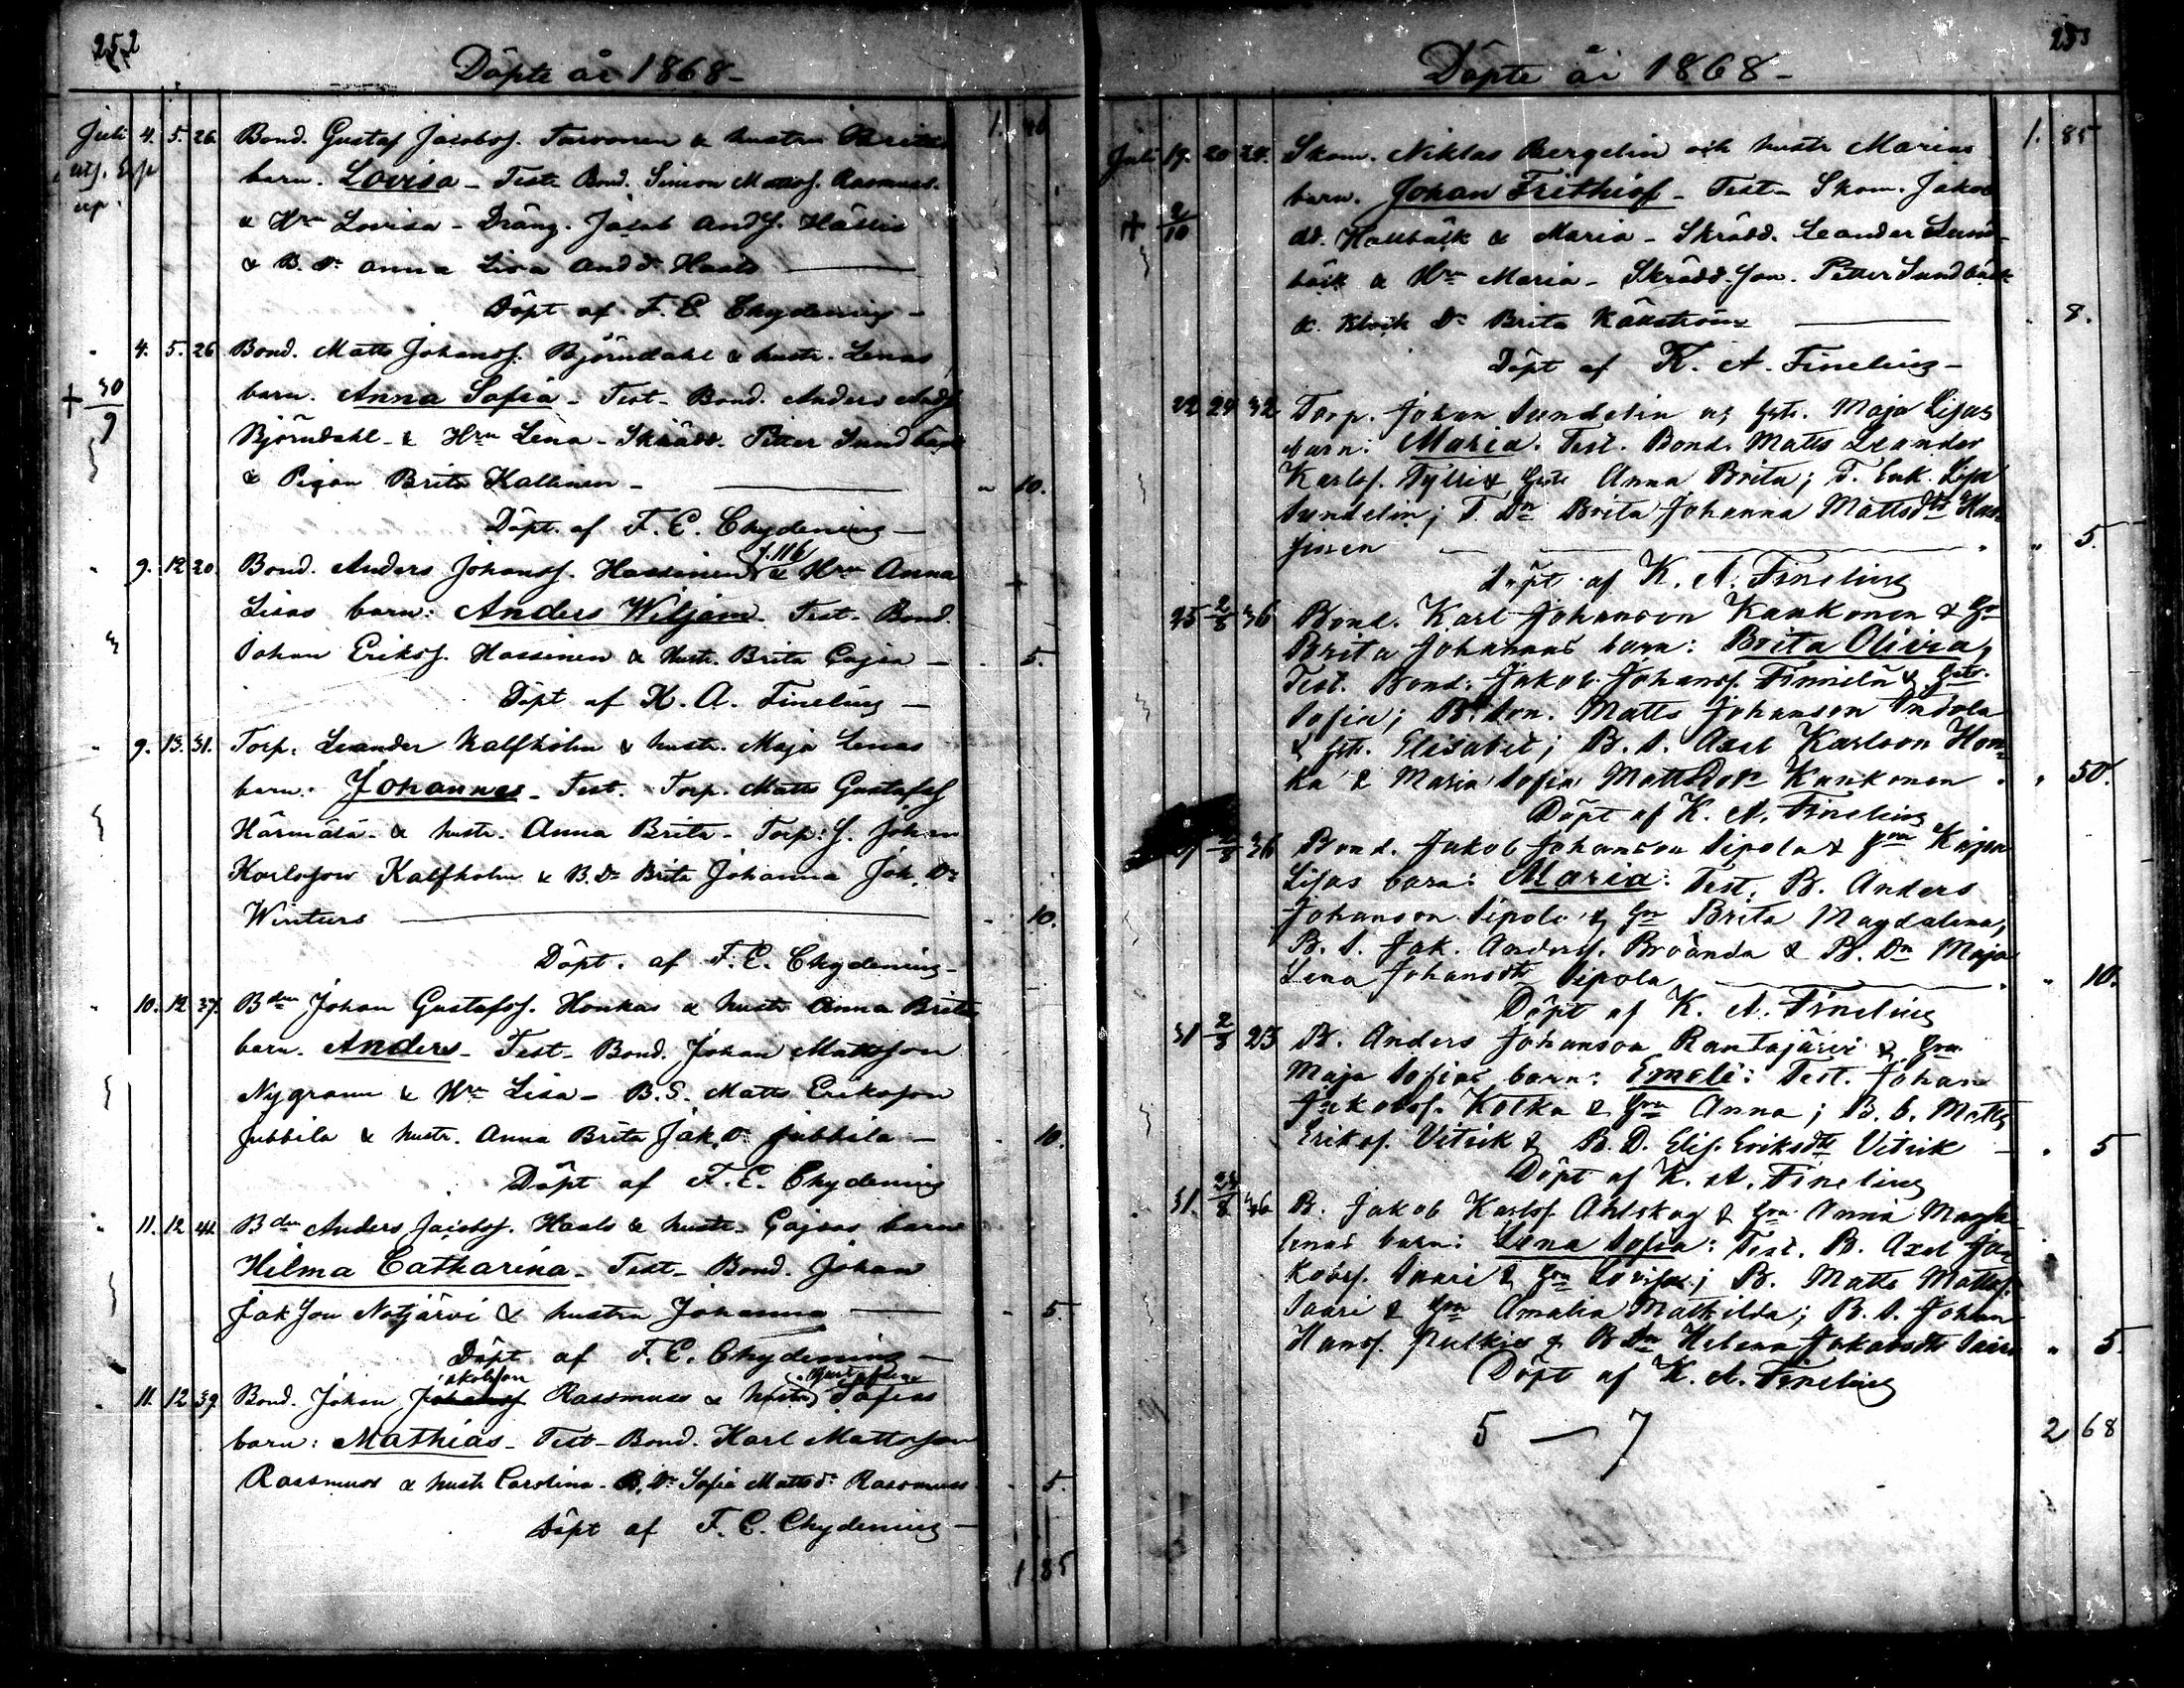 252
Döpte år 1868-
Juli 4. 5. 26. Bond. Gustaf Jacobsf. Tarvonen & hustru Britas 1. 40
barn. Lovisa - Test. Bond. Simon Mattsf. Rasmus.
& Hru Lovisa - Dräng. Jacob Andf. Hällis
& B. Dr Anna Lisa And dr Haals
Döpt af F. E. Chydenius -
4. 5. 26 Bond. Matts Johansf. Björndahl & hustr. Lenas
+ 30/9 barn. Anna Sofia - Test - Bond. Anders Andf.
Björndahl - & Hru Lena - Skrädd. Petter Sundbäck
& Pigan Brita Kallinen - " 10.
Döpt. af F. E. Chydenius -
f. 116
9. 12 20. Bond. Anders Johansf. Hassinen & Hru Anna
Lisas barn: Anders Wiljam - Test. Bond.
Johan Eriksf. Hassinen & hustr. Brita Cajsa - 5.
Döpt af K. A. Finelius -
9. 13. 31. Torp. Leander Kalfholm & hustr. Maja Lenas
barn: Johannes - Test. Torp. Matts Gustafsf
Härmälä - & hustr. Anna Brita - Torp: S. Johan
Karlsson Kalfholm & B. Dr Brita Johanna Joh. Dr
Winturs 10.
Döpt. af F. E. Chydenius -
10. 12 37. Bdn Johan Gustafsf. Honkas & hustr Anna Britas
barn. Anders - Test - Bond. Johan Mattsson
Nygrann & Hru Lisa - B. S. Matts Eriksson
Jubbila & hustr. Anna Brita Jak. Dr Jubbila - 10.
Döpt af F. E. Chydenius
11. 12 41. Bdn Anders Jacobsf. Haals & hustr. Cajsas barn
Hilma Catharina - Test - Bond. Johan
Jakson Notjärvi & hustru Johanna 5.
Döpt. af F. E. Chydenius -
akobson
11. 12 39. Bond. Johan Johansf Rassmuss & hustru Sofias
barn: Mathias - Test - Bond. Karl Mattsson
Rassmuss & hustr Carolina - B. Dr Sofia Matts dr Rassmuss 5.
Döpt af F. E. Chydenius -
1. 85
253
Döpte år 1868-
Juli 19. 20 24. Skom. Niklas Bergelin och hustr Marias 1. 85
barn. Johan Frithiof - Test - Skom. Jakob
+ 2/10 Hallbäck & Maria - Skrädd. Leander Sund-
bäck & Hru Maria - Skrädd. son. Petter Sundbäck
& Klock Dr Brita Källström 8.
Döpt af K. A. Finelius -
22 24 32 Torp. Johan Sundelin & hstr. Maja Lisas
barn: Maria. Test. Bond. Matts Leander
Karlsf. Tylli & hstr Anna Brita; T. Enk. Lisa
Sundelin; T. Dn Brita Johanna Mattsdtr
" 5.
Döpt af K. A. Finelius
25 2/8 36 Bond. Karl Johanson Kankonen & Hu
Brita Johannas barn: Brita Olivia,
Test. Bond. Jakob Johansf. Finnilä & hstr.
Sofia; B. Son. Matts Johanson Indola
& hstr. Elisabet; B. S. Axel Karlson Hon-
ka & Maria Sofia Mattsdotr Kankonen " 50.
Döpt af K. A. Finelius
2/8 36 Bond. Jakob Johanson Sipola & Hru Kajsa
Lisas barn: Maria: Test. B. Anders
Johanson Sipola & Hru Brita Magdalena,
B. S. Jak. Andersf. Broända & B. Dn Maja
Lena Johansdtr Sipola " 10.
Döpt af K. A. Finelius
31 2/8 23 B. Anders Johanson Rantajärvi & Hru
Maja Sofias barn: Emeli: Test. Johan
Jakobsf. Kolka & Hru Anna; B. S. Matts
Eriksf. Vitick & B. D. Elis. Eriksdtr Vitick " 5
Döpt af K. A. Finelius
31. 36 B. Jakob Karlsf. Ahlskog & Hru Anna Magda-
lenas barn: Lena Sofia: Test. B. Axel Ja-
kobsf. Saari & Hru Lovisa; B. Matts Mattsf.
Saari & Hru Amalia Mathilda; B. S. Johan
Hansf. Pulkis & B Dn Helena Jakobsdtr Saari " 5.
Döpt af K. A. Finelius
5 - 7
2 68